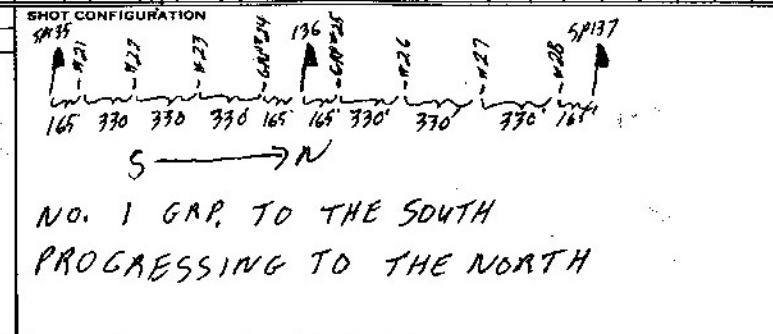 SHOT CONFIGURATION
SP135 #21 #22 #23 GRP#24 136 GRP#25 #26 #27 #28 SP137
165' 330 330 330 165' 165' 330' 330' 330' 165'
S → N
NO. 1 GRP. TO THE SOUTH
PROGRESSING TO THE NORTH